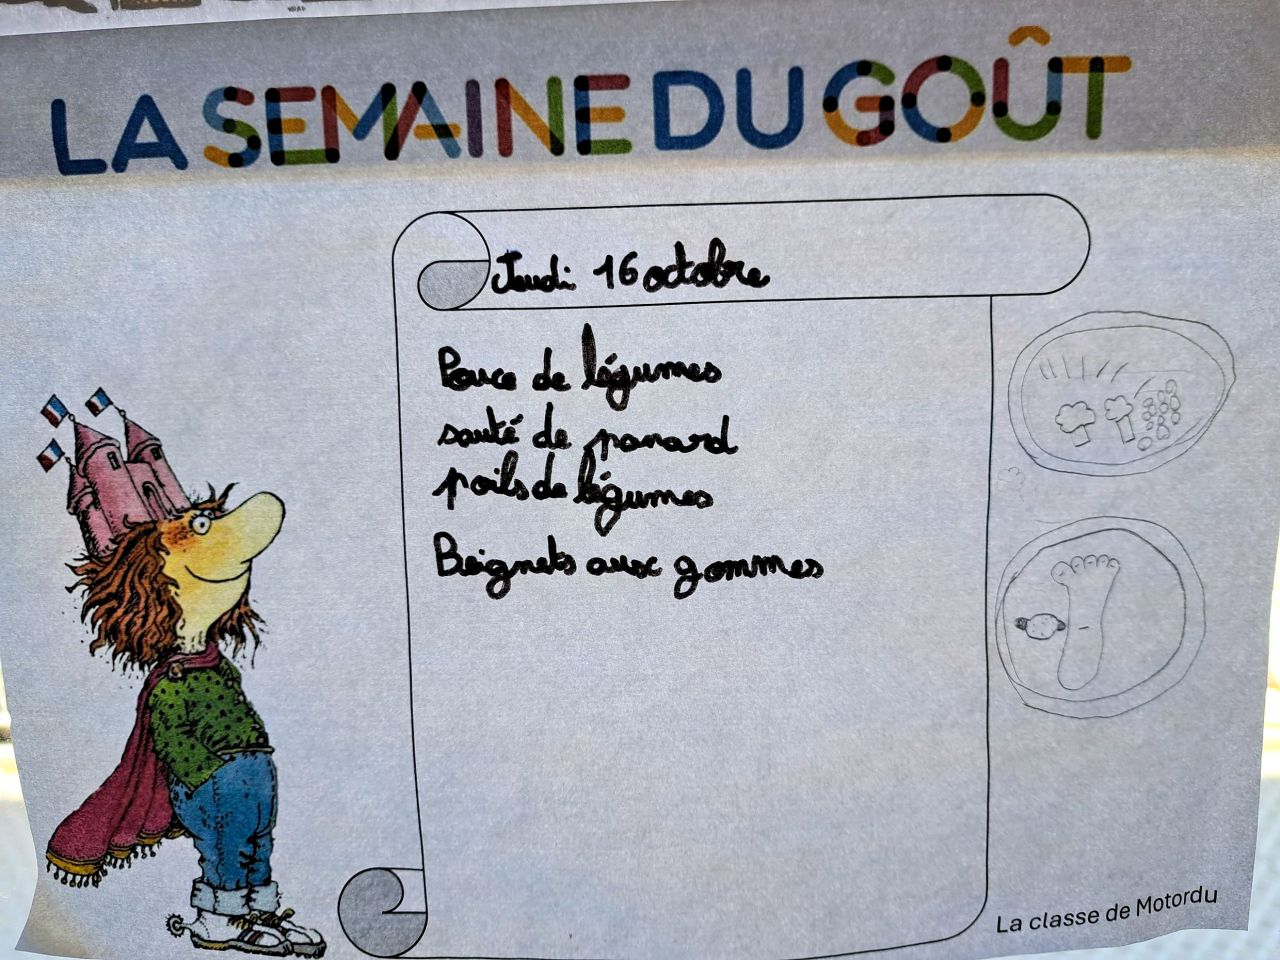 LA SEMAINE DU GOÛT
Jeudi 16 octobre
Pouce de légumes
sauté de panard
poils de légumes
Beignets aux gommes
La classe de Motordu